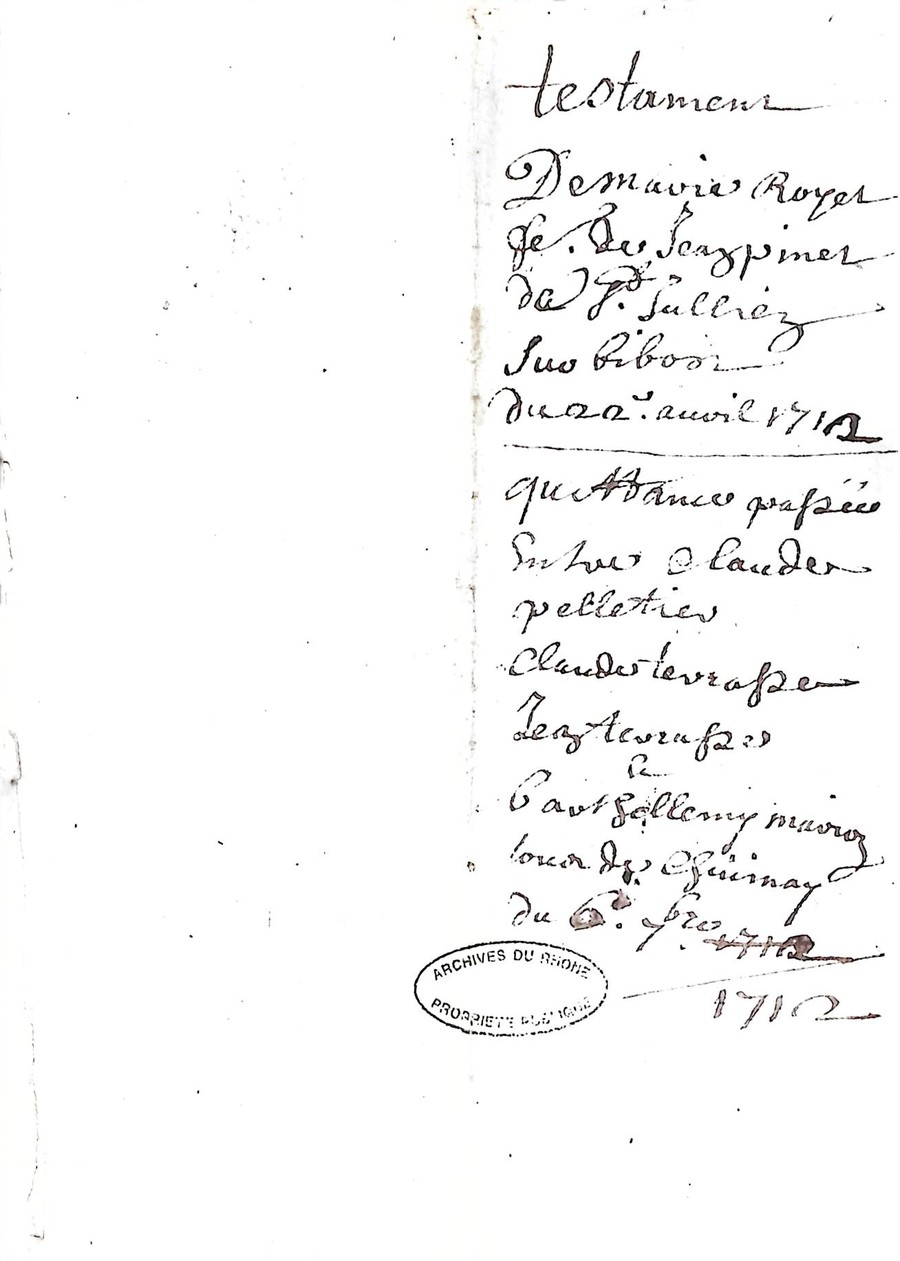 testament
De marie Royet
fe. de Jean pinet
de St. Jullien
Sur bibost
du 22e. avvil 1712
quittance passée
Entre Claude
pelletier
Claude terrasse
Jean terrasse
&
barthellemy
tour de
du 6e. 1712
1712
ARCHIVES DU RHONE
PROPRIETE PUBLIQUE